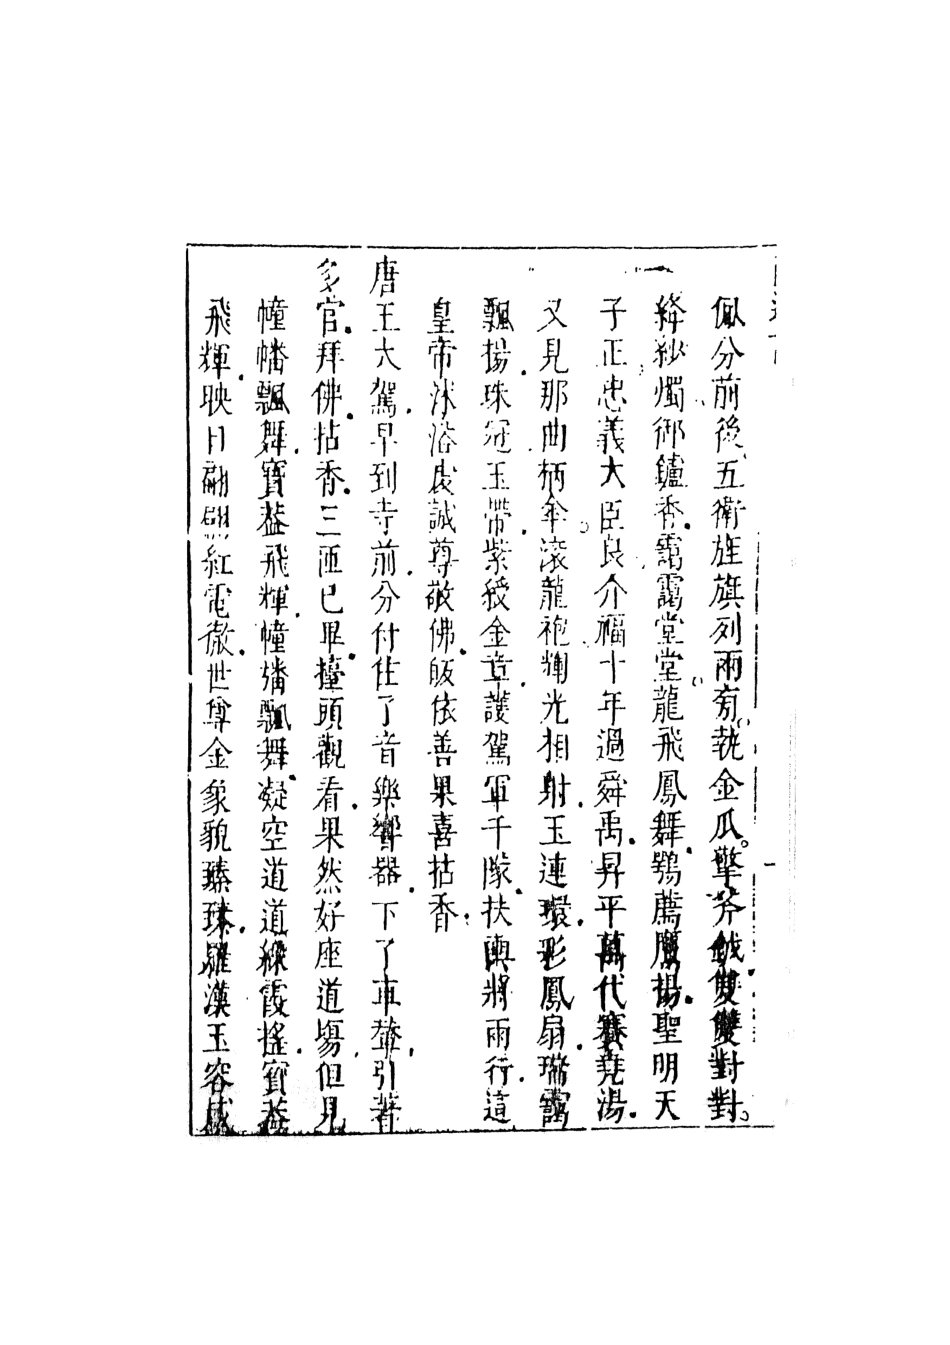 佩分前後五衛旌旗列兩旁執金瓜擎斧鉞雙雙對對
絳紗燭御鑪香靄靄堂堂龍飛鳳舞鶚薦鷹揚聖明天
子正忠義大臣良介福十年過舜禹昇平萬代賽堯湯
又見那曲柄傘滾龍袍輝光相射玉連環彩鳳扇瑞靄
飄揚珠冠玉帶紫綬金章護駕軍千隊扶輿將兩行這
皇帝沐浴虔誠尊敬佛皈依善果喜拈香
唐王大駕早到寺前分付住了音樂響器下了車輦引著
多官拜佛拈香三匝已畢擡頭觀看果然好座道場但見
幢幡飄舞寶蓋飛輝幢旛飄舞凝空道道綵霞搖寶蓋
飛輝映日翩翩紅電徹世尊金象貌臻臻羅漢玉容威